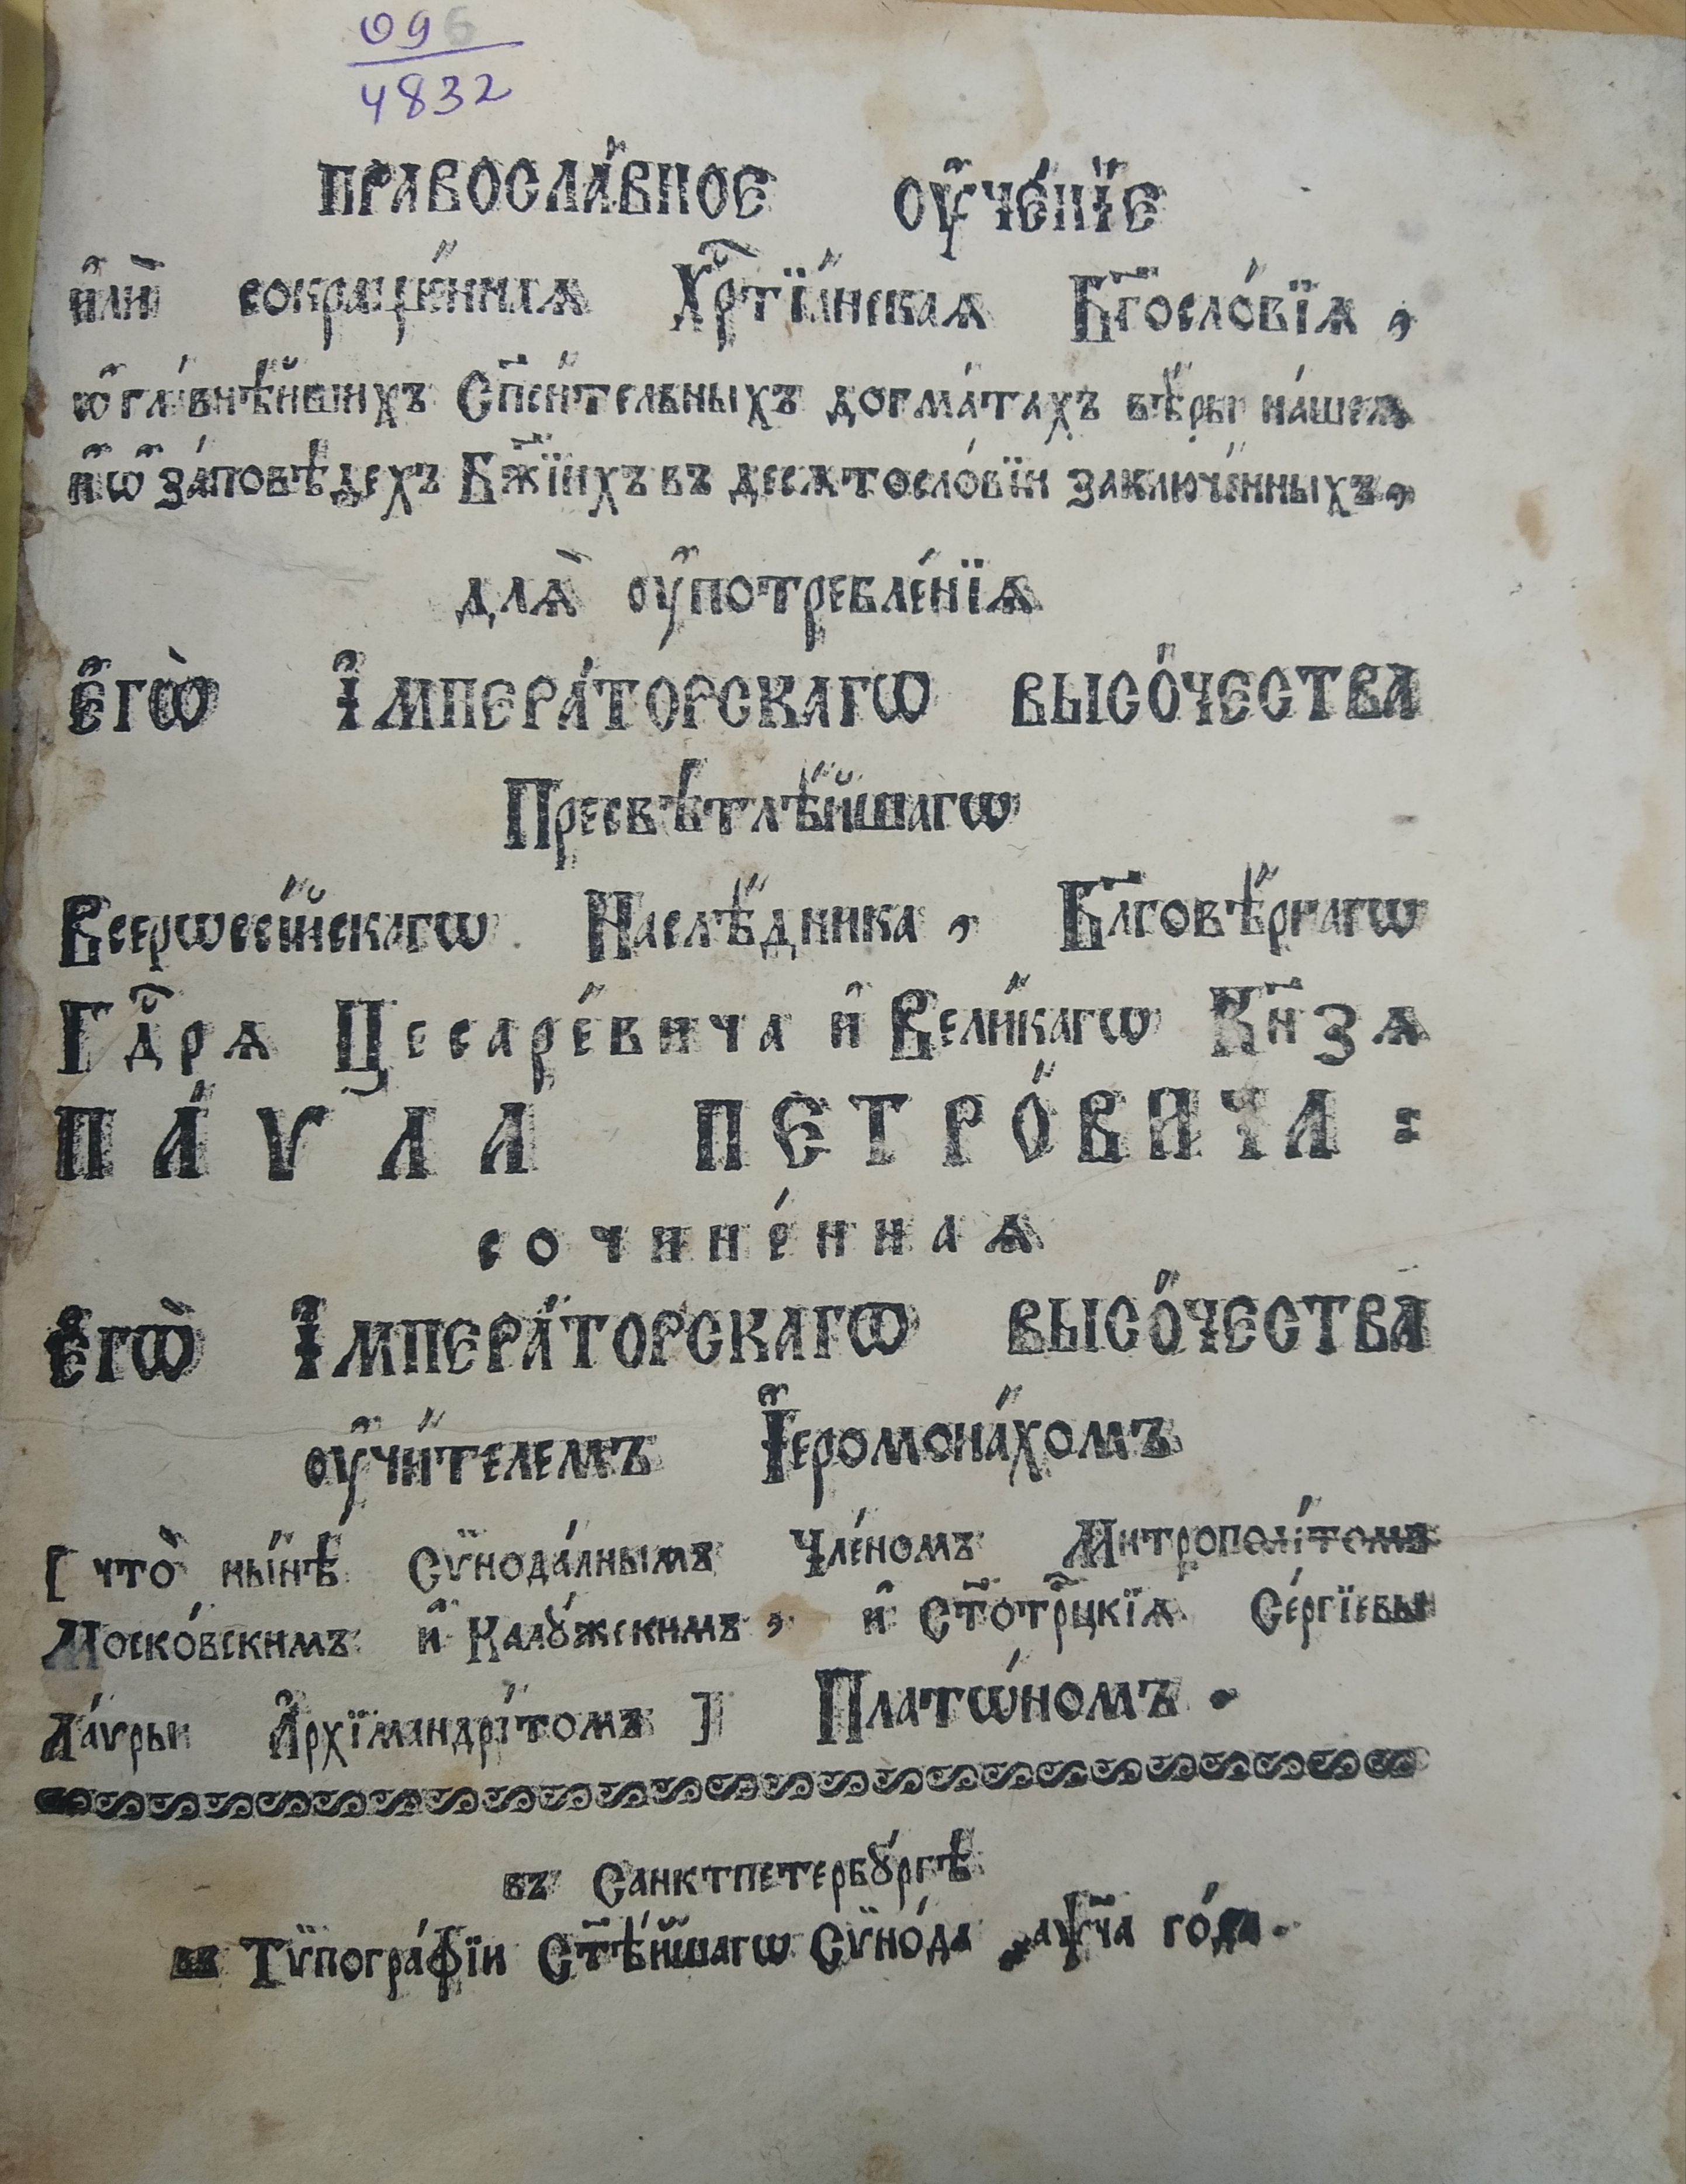 096
4832
ПРАВОСЛА́ВНОЕ ОУ҆ЧЕ́НЇЕ
и҆лѝ сокраще́ннаѧ Хрⷭ҇тїа́нскаѧ Бг҃осло́вїѧ,
ѡ҆ гла́внѣйшихъ Сп҃си́тельныхъ догма́тахъ вѣ́ры на́шеѧ
и҆ ѡ҆ за́повѣдехъ Бж҃їихъ въ десѧтосло́вїи заключе́нныхъ,
длѧ̀ оу҆потребле́нїѧ
Е҆ГѠ̀ І҆МПЕРА́ТОРСКАГѠ ВЫСО́ЧЕСТВА
Пресвѣтлѣ́йшагѡ
Всерѡссі́йскагѡ Наслѣ́дника, Бл҃говѣ́рнагѡ
Гдⷭ҇рѧ Цесаре́вича и҆ Вели́кагѡ Кн҃зѧ
ПА́ѴЛА ПЕТРО́ВИЧА:
сочине́ннаѧ
Е҆ГѠ̀ І҆МПЕРА́ТОРСКАГѠ ВЫСО́ЧЕСТВА
оу҆чи́телемъ І҆еромона́хомъ
[ что̀ ны́нѣ Сѷнода́лнымъ Чле́номъ Митрополі́томъ
Моско́вскимъ и҆ Калꙋ́жскимъ, и҆ Ст҃отрⷪ҇цкїѧ Се́ргїевы
Ла́ѵры А҆рхїмандрі́томъ ] Платѡ́номъ.
въ Санктпетербꙋ́ргѣ
въ Тѷпогра́фїи Ст҃ѣ́йшагѡ Сѷно́да ҂аѱ҃ча го́да.